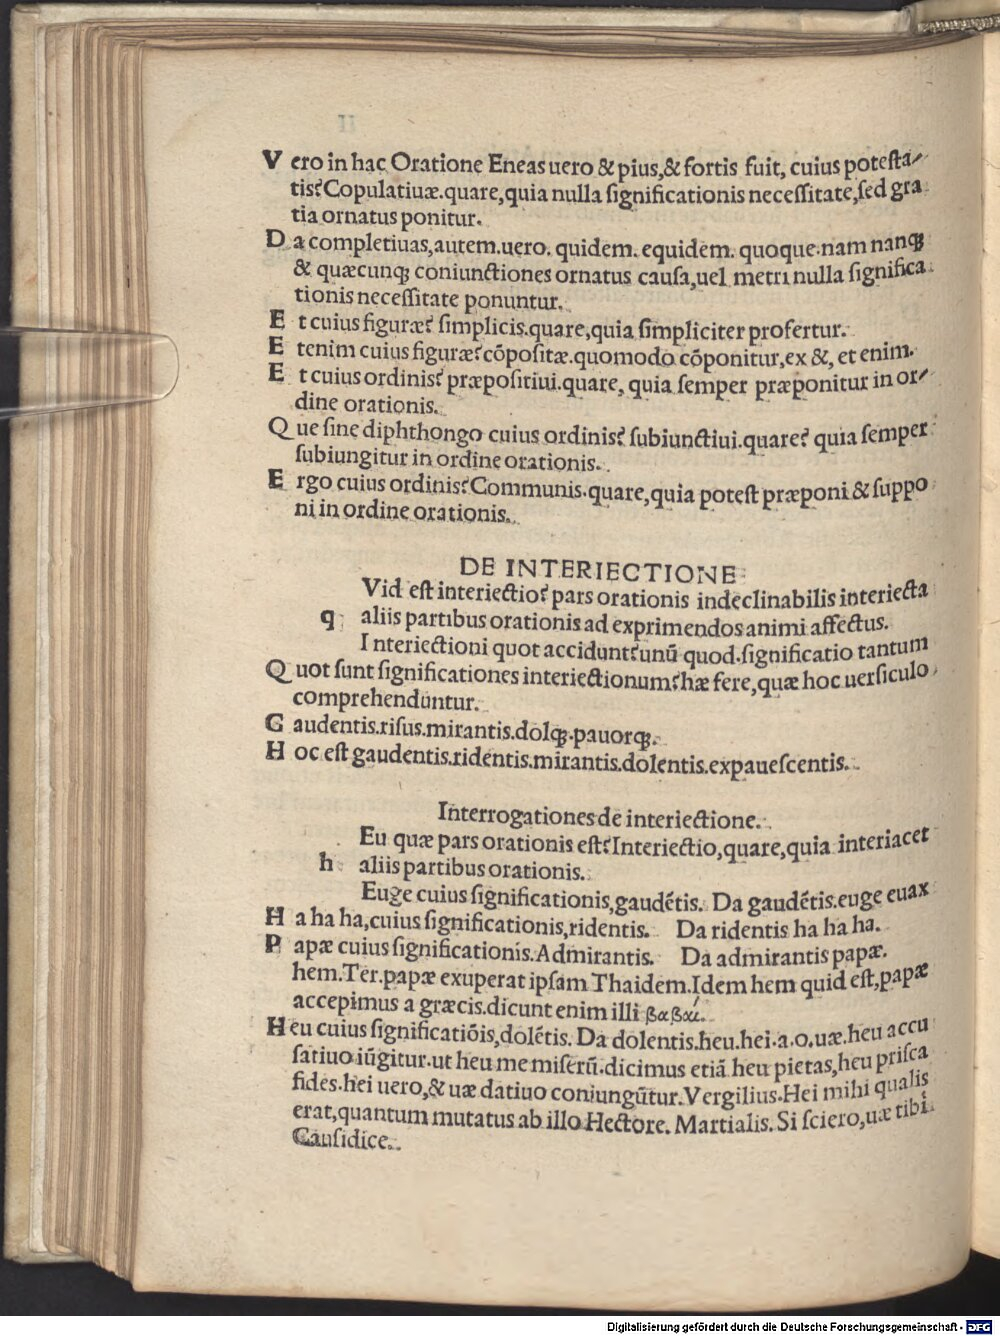 V ero in hac Oratione Eneas uero & pius,& fortis fuit, cuius potesta⸗
tis? Copulatiuæ.quare,quia nulla significationis necessitate,sed gra
tia ornatus ponitur.
D a completiuas,autem.uero. quidem. equidem. quoque.nam nanqꝫ
& quæcunqꝫ coniunctiones ornatus causa,uel metri nulla significa
tionis necessitate ponuntur.
E t cuius figuræ? simplicis.quare,quia simpliciter profertur.
E tenim cuius figuræ? cõpositæ.quomodo cõponitur,ex &, et enim.
E t cuius ordinis? præpositiui.quare, quia semper præponitur in or⸗
dine orationis.
Q ue sine diphthongo cuius ordinis? subiunctiui.quare? quia semper
subiungitur in ordine orationis.
E rgo cuius ordinis? Communis.quare,quia potest præponi & suppo
ni in ordine orationis.
DE INTERIECTIONE
Vid est interiectio? pars orationis indeclinabilis interiecta
q aliis partibus orationis ad exprimendos animi affectus.
I nteriectioni quot accidunt? unũ quod.significatio tantum
Q uot sunt significationes interiectionum? hæ fere,quæ hoc uersiculo
comprehenduntur.
G audentis.risus.mirantis.dolqꝫ.pauorqꝫ.
H oc est gaudentis.ridentis.mirantis.dolentis.expauescentis.
Interrogationes de interiectione.
Eu quæ pars orationis est? Interiectio,quare,quia interiacet
h aliis partibus orationis.
Euge cuius significationis,gaudẽtis. Da gaudẽtis.euge euax
H a ha ha,cuius significationis,ridentis. Da ridentis ha ha ha.
P apæ cuius significationis.Admirantis. Da admirantis papæ.
hem.Ter.papæ exuperat ipsam Thaidem.Idem hem quid est,papæ
accepimus a græcis.dicunt enim illi βαβαί.
H eu cuius significatiõis,dolẽtis. Da dolentis.heu.hei.a.o.uæ.heu accu
satiuo iũgitur.ut heu me miserũ.dicimus etiã heu pietas,heu prisca
fides.hei uero,& uæ datiuo coniungũtur.Vergilius.Hei mihi qualis
erat,quantum mutatus ab illo Hectore. Martialis. Si sciero,uæ tibi
Causidice.
Digitalisierung gefördert durch die Deutsche Forschungsgemeinschaft - DFG